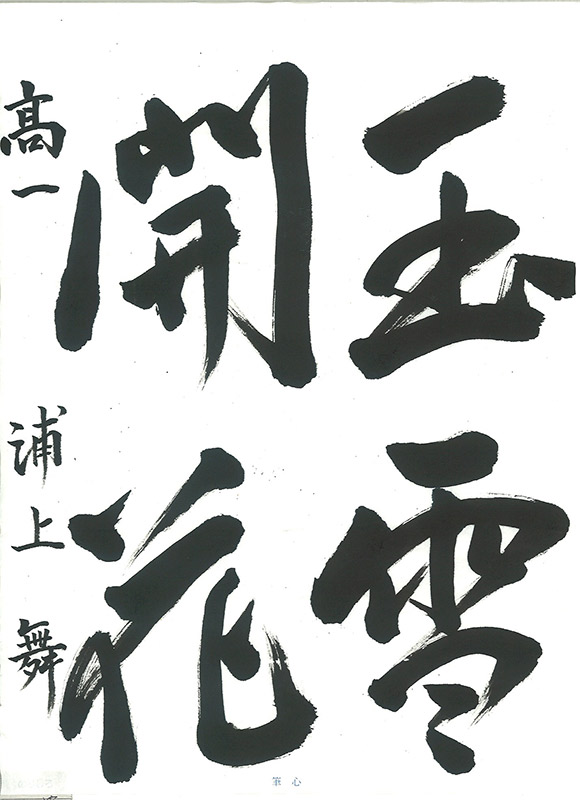 玉雪
開花
高一 浦上舞
心筆